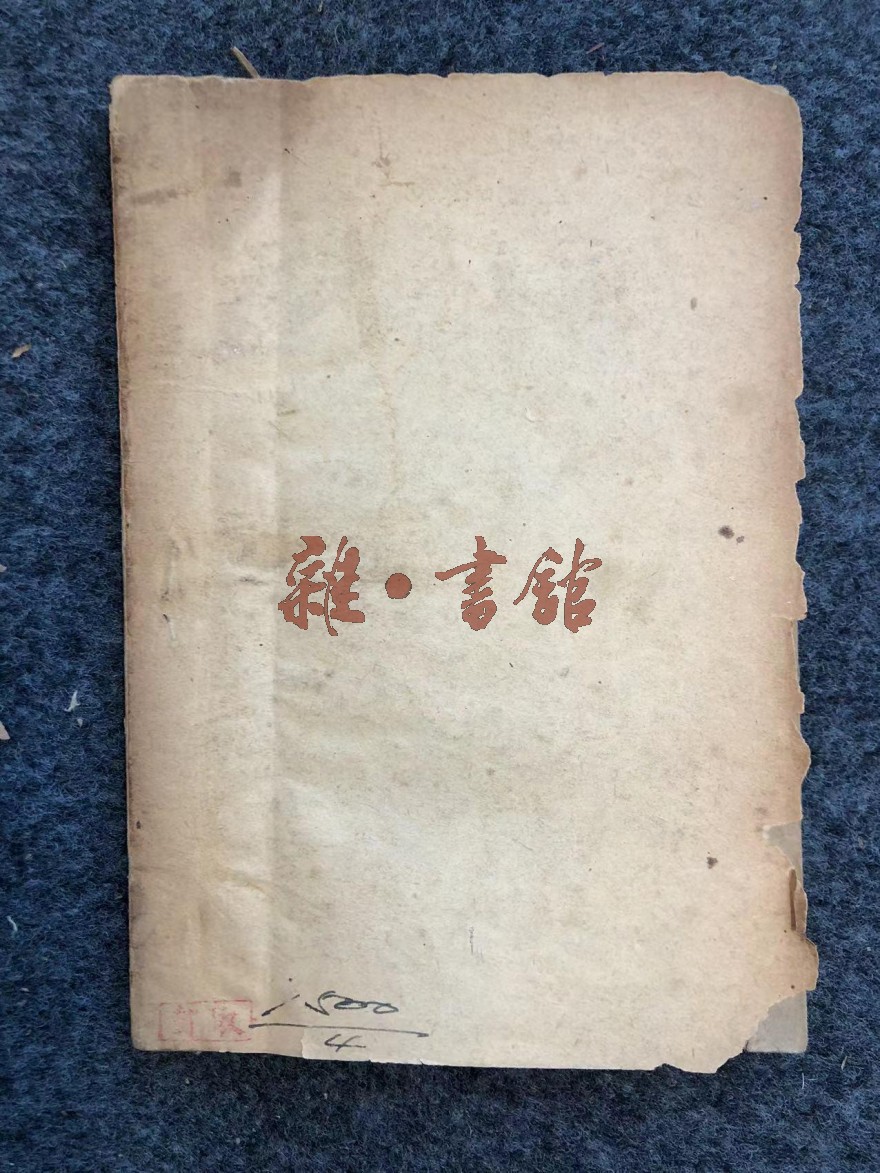 雜·書館
1500
4